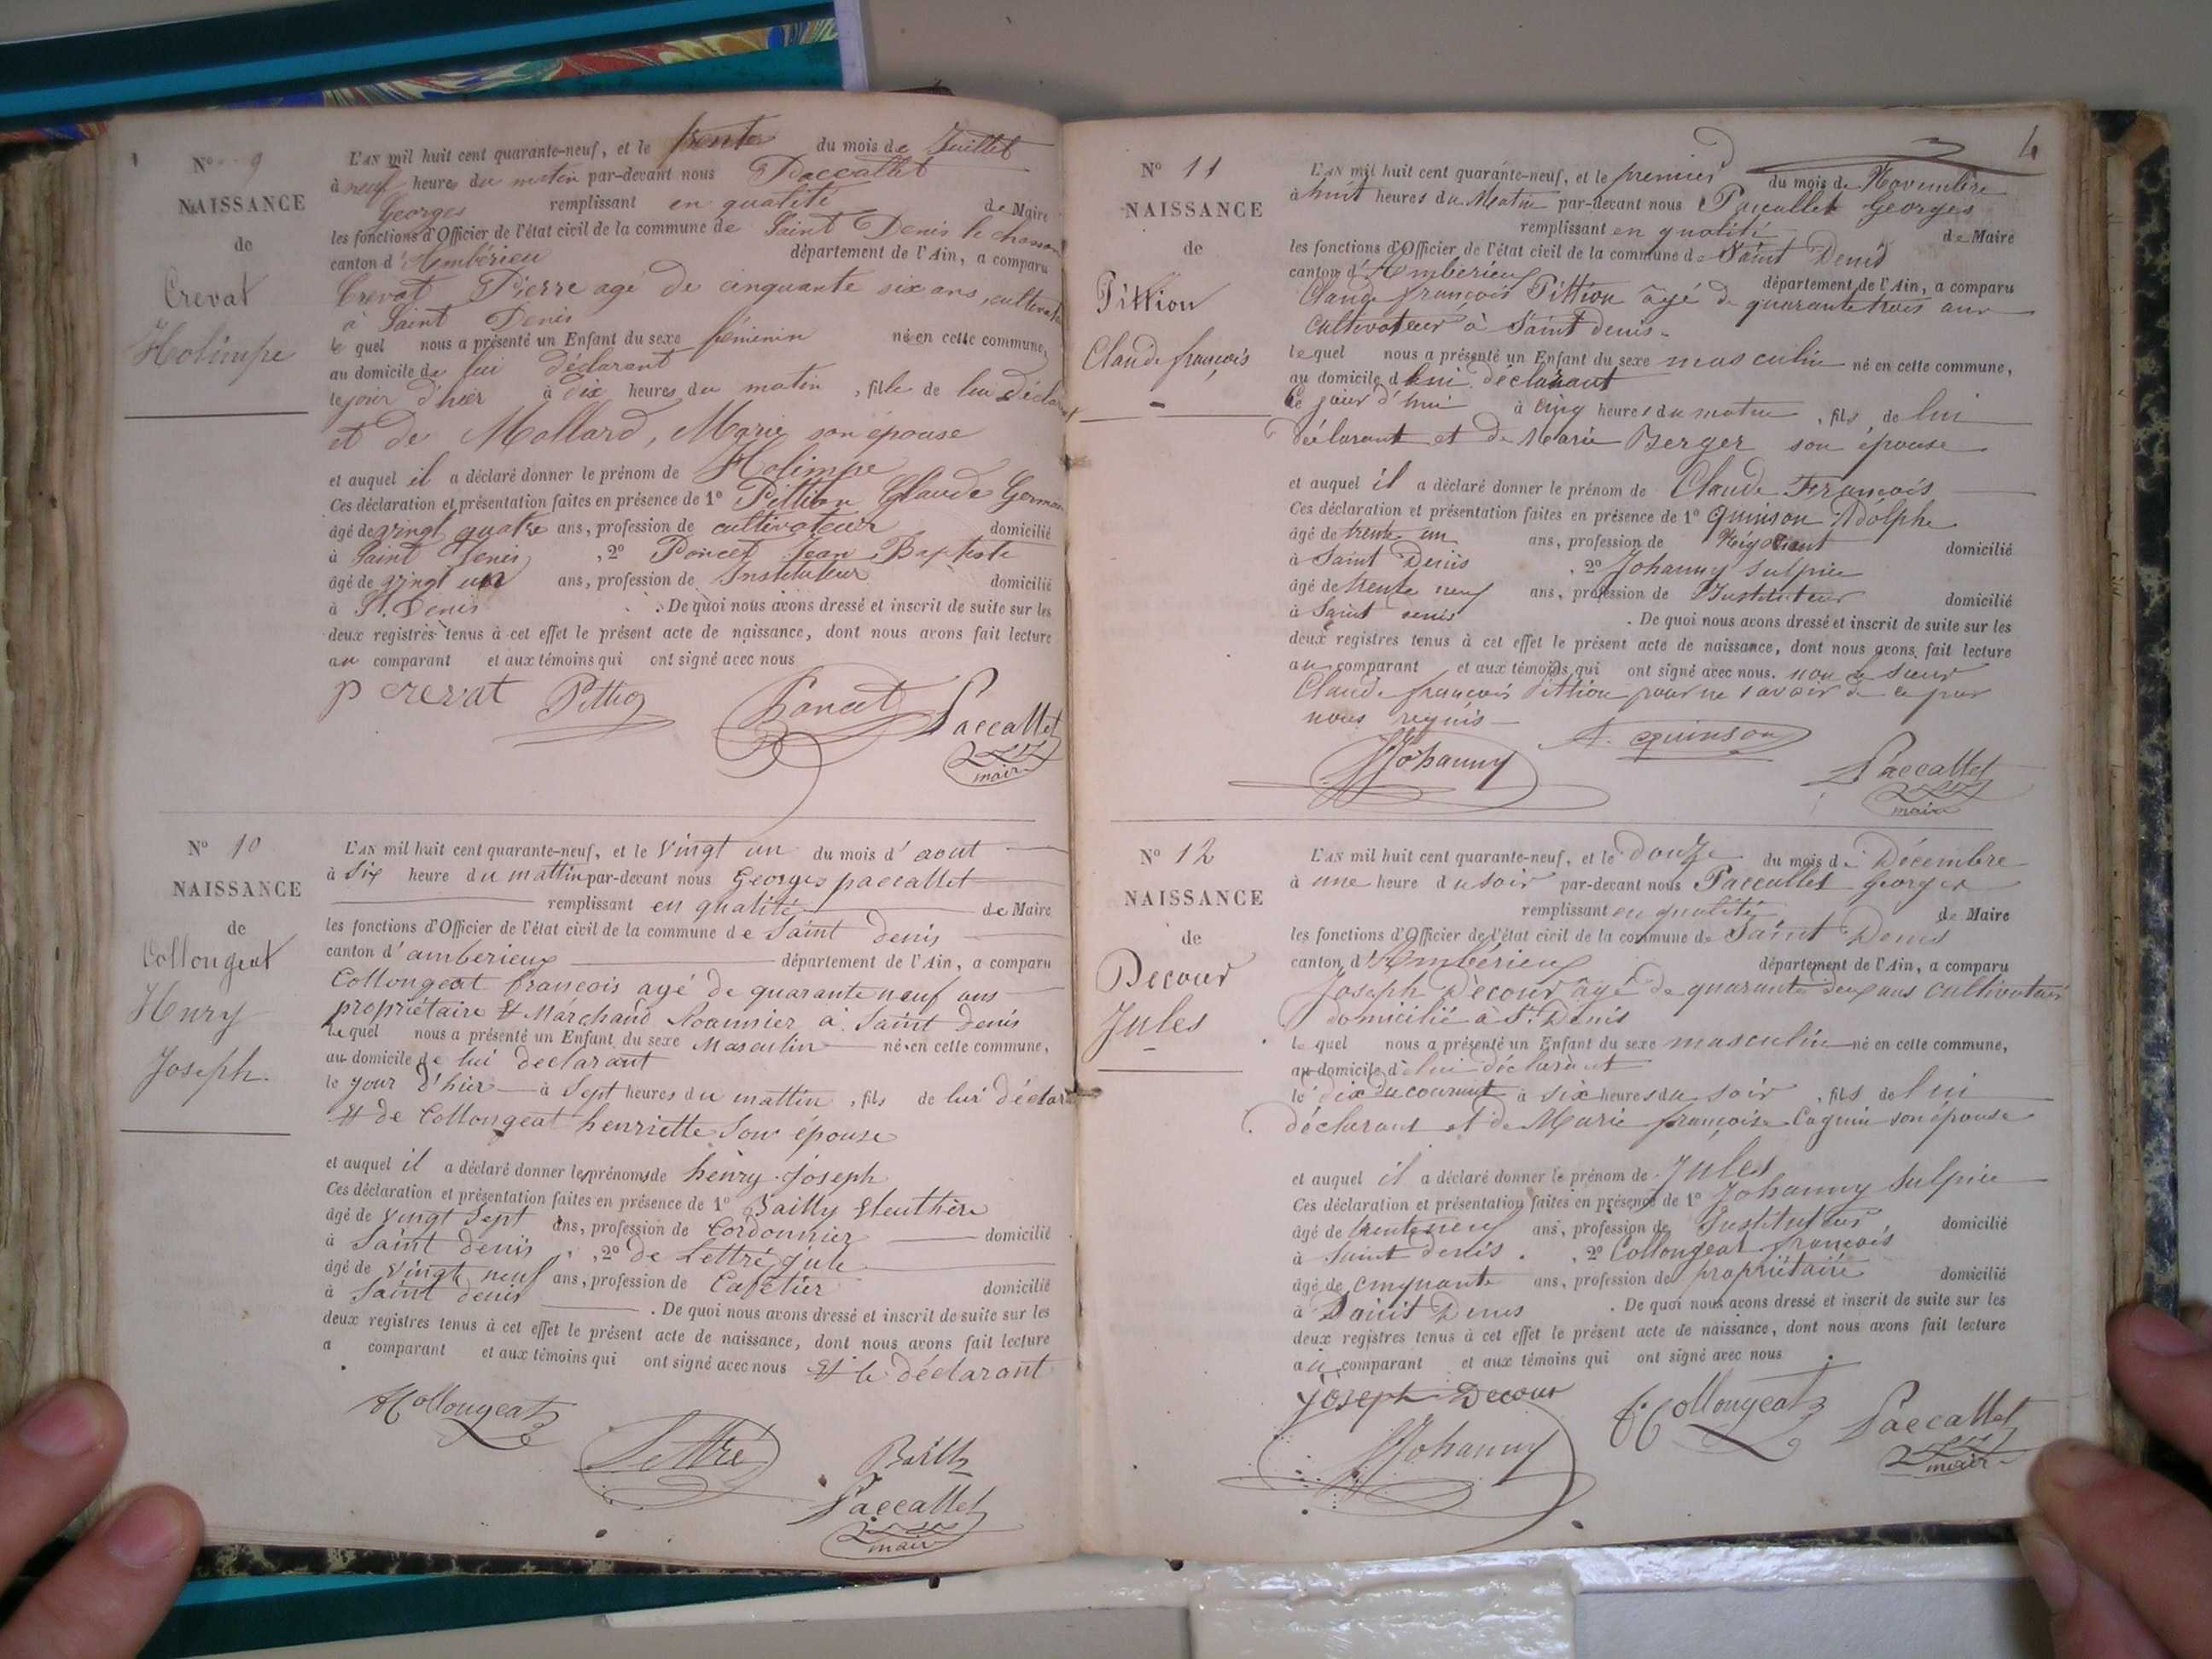 N° 9
NAISSANCE
de
Crevat
Holimpe
L'AN mil huit cent quarante-neuf, et le trente du mois de Juillet
à neuf heures du matin par-devant nous Paccallet
Georges remplissant en qualité de Maire
les fonctions d'Officier de l'état civil de la commune de Saint Denis le chosson
canton d'Ambérieu département de l'Ain, a comparu
Crevat Pierre agé de cinquante six ans, cultivateur
à Saint Denis
le quel nous a présenté un Enfant du sexe féminin né en cette commune,
au domicile de lui déclarant
le jour d'hier à dix heures du matin, fille de lui déclarant
et de Mollard, Marie son épouse
et auquel il a déclaré donner le prénom de Holimpe
Ces déclaration et présentation faites en présence de 1° Pittion Claude Germain
âgé de vingt quatre ans, profession de cultivateur domicilié
à Saint Denis, 2° Poncet Jean Baptiste
âgé de vingt un ans, profession de Instituteur domicilié
à St. Denis. De quoi nous avons dressé et inscrit de suite sur les
deux registres tenus à cet effet le présent acte de naissance, dont nous avons fait lecture
au comparant et aux témoins qui ont signé avec nous
p crevat Pittion Poncet Paccallet
maire
N° 10
NAISSANCE
de
Collongeat
Henry
Joseph.
L'AN mil huit cent quarante-neuf, et le Vingt un du mois d'aout
à six heure du mattin par-devant nous Georges paccallet
remplissant en qualité de Maire
les fonctions d'Officier de l'état civil de la commune de Saint denis
canton d'amberieux département de l'Ain, a comparu
Collongeat francois agé de quarante neuf ans
propriétaire & Marchand à Saint denis
le quel nous a présenté un Enfant du sexe Masculin né en cette commune,
au domicile de lui declarant
le jour d'hier à Sept heures du mattin, fils de lui déclarant
& de Collongeat henriette son épouse
et auquel il a déclaré donner les prénoms de henry joseph
Ces déclaration et présentation faites en présence de 1° Bailly Eleuthère
âgé de vingt sept ans, profession de Cordonnier domicilié
à Saint denis, 2° de Lettré jule
âgé de vingt neuf ans, profession de Cafetier domicilié
à Saint denis. De quoi nous avons dressé et inscrit de suite sur les
deux registres tenus à cet effet le présent acte de naissance, dont nous avons fait lecture
a comparant et aux témoins qui ont signé avec nous & le déclarant
Collongeat
Lettré
Paccallet
maire
4
N° 11
NAISSANCE
de
Pittion
Claude françois
L'AN mil huit cent quarante-neuf, et le premier du mois de Novembre
à huit heures du Matin par-devant nous Paccallet Georges
remplissant en qualité de Maire
les fonctions d'Officier de l'état civil de la commune de Saint Denis
canton d'Amberieux département de l'Ain, a comparu
Claude françois Pittion âgé de quarante trois ans
cultivateur à Saint denis
le quel nous a présenté un Enfant du sexe masculin né en cette commune,
au domicile d lui déclarant
Ce jour d'hui à cinq heures du matin, fils de lui
déclarant et de Marie Berger son épouse
et auquel il a déclaré donner le prénom de Claude François
Ces déclaration et présentation faites en présence de 1° Quinson Adolphe
âgé de trente un ans, profession de Négociant domicilié
à Saint Denis. 2° Johanny Sulpice
âgé de trente neuf ans, profession de Instituteur domicilié
à Saint denis. De quoi nous avons dressé et inscrit de suite sur les
deux registres tenus à cet effet le présent acte de naissance, dont nous avons fait lecture
au comparant et aux témoins qui ont signé avec nous. non le sieur
Claude françois Pittion pour ne savoir de ce par
nous requis
Johanny A. quinson Paccallet
maire
N° 12
NAISSANCE
de
Decour
Jules
L'AN mil huit cent quarante-neuf, et le douze du mois de Décembre
à une heure du soir par-devant nous Paccallet Georges
remplissant en qualité de Maire
les fonctions d'Officier de l'état civil de la commune de Saint Denis
canton d'Amberieux département de l'Ain, a comparu
Joseph Decour âgé de quarante deux ans cultivateur
domicilié à St. Denis
le quel nous a présenté un Enfant du sexe masculin né en cette commune,
au domicile de lui déclarant
le dix du courant à six heures du soir, fils de lui
déclarant et de Marie françoise Cognin son épouse
et auquel il a déclaré donner le prénom de Jules
Ces déclaration et présentation faites en présence de 1° Johanny Sulpice
âgé de trente neuf ans, profession de Instituteur domicilié
à Saint Denis. 2° Collongeat françois
âgé de cinquante ans, profession de propriétaire domicilié
à Saint Denis. De quoi nous avons dressé et inscrit de suite sur les
deux registres tenus à cet effet le présent acte de naissance, dont nous avons fait lecture
au comparant et aux témoins qui ont signé avec nous
Joseph Decour Collongeat Paccallet
Johanny maire